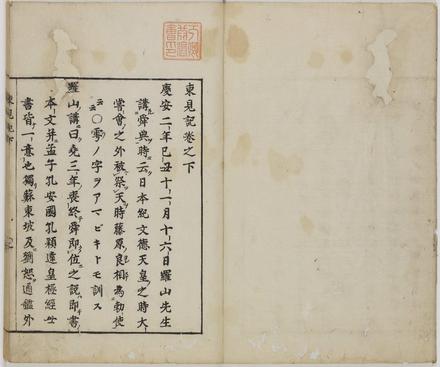 東見記卷之下
慶安二年己丑十一月十六日羅山先生
講舜典時云日本紀文德天皇之時大
嘗會之外被祭天時藤原良相為勅使
云云○雩ノ字ヲアマビキトモ訓ス
羅山講曰堯三年喪終舜即位之説即書
本文并孟子孔安國孔穎達皇極經世
書皆一意也獨蘇東坡及劉恕通鑑外